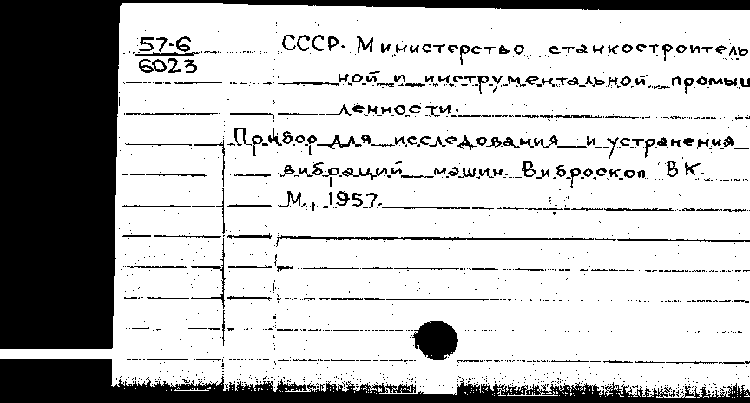 57-6
6023
СССР. Министерство станкостроитель
ной и инструментальной промыш
ленности.
Прибор для исследования и устранения
вибраций машин. Виброскоп ВК.
М., 1957.